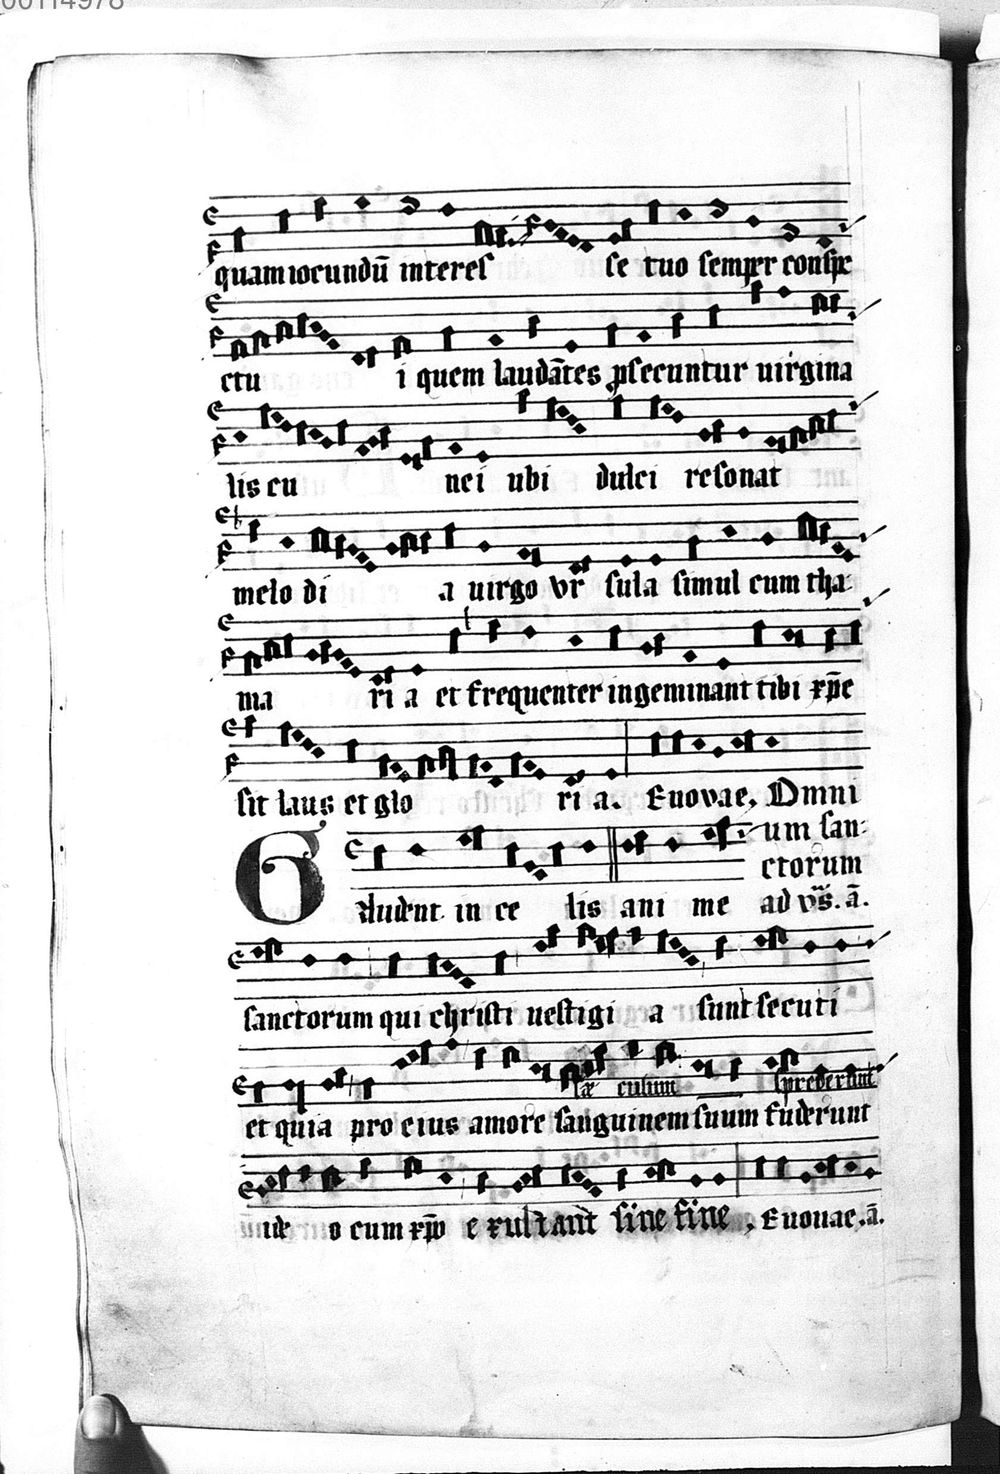 00114978
quam iocundū interes se tuo semper conspe
ctu i quem laudātes psecuntur uirgina
lis cu nei ubi dulci resonat
melo di a uirgo vr̄ sula simul cum tha-
ma ri a et frequenter ingeminant tibi xp̄e
sit laus et glo ri a. Euovae, Omni
um san-
ctorum
Gaudent in ce lis ani me ad vs̄. ā.
sanctorum qui christi uestigi a sunt secuti
et quia pro eius amore sanguinem suum fuderunt
ide o cum xp̄o e xultant sine fine, Euouae. ā.